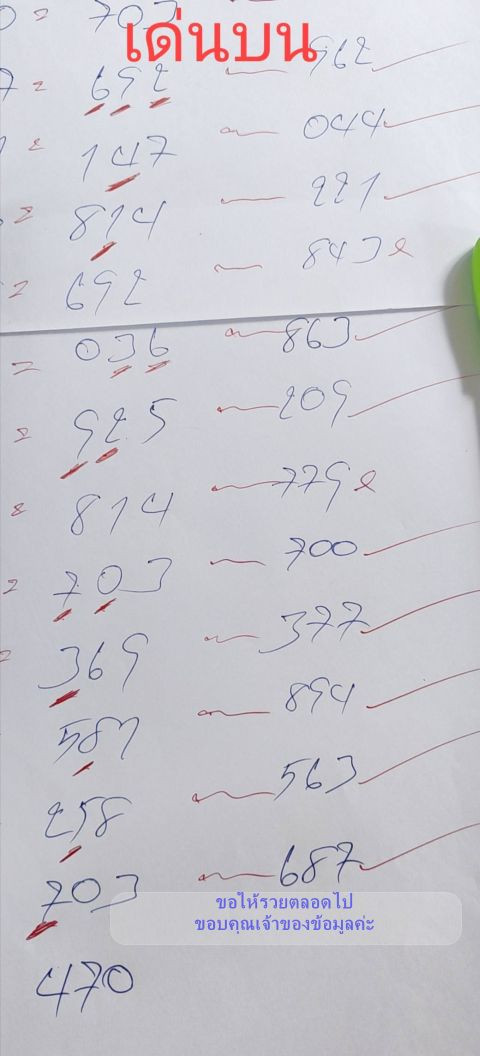 = 703
เด่นบน
= 692 — 962
= 147 — 044
= 814 — 221
= 692 — 843 x
= 036 — 863
= 925 — 209
= 814 — 779 x
= 703 — 700
= 369 — 377
587 — 894
258 — 563
703 — 687
ขอให้รวยตลอดไป
ขอบคุณเจ้าของข้อมูลค่ะ
470